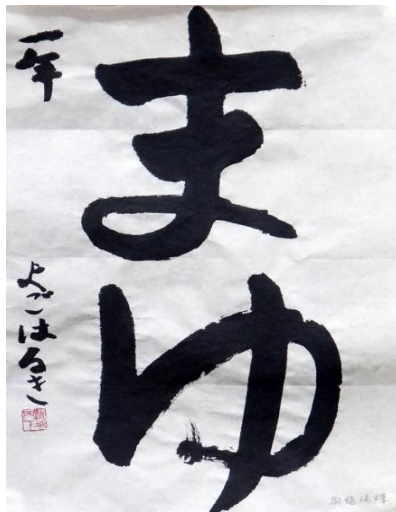 まゆ
一年
よごはるき